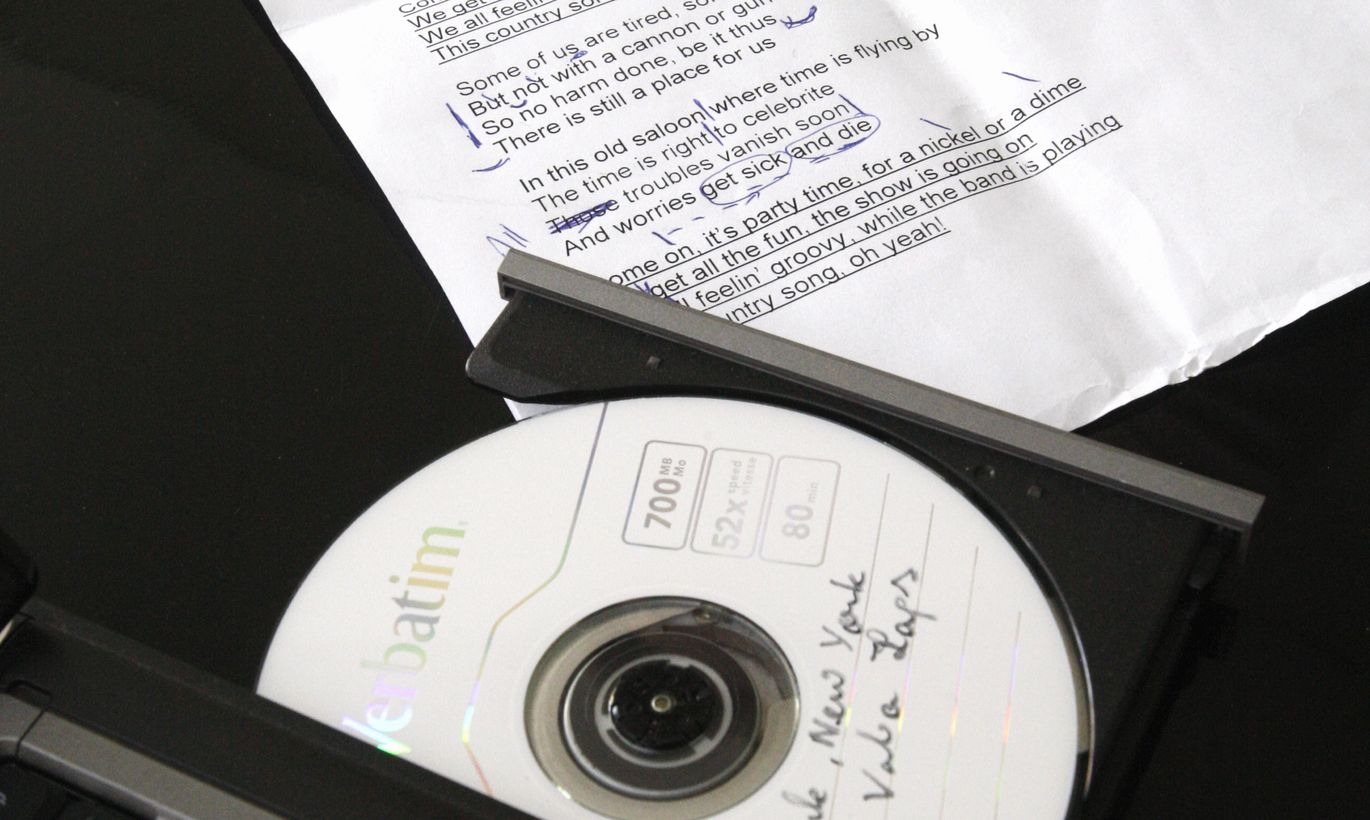 We get
We all feelin
This country so
Some of us are tired, so
But not with a cannon or gun
So no harm done, be it thus
There is still a place for us
In this old saloon where time is flying by
The time is right to celebrite
Those troubles vanish soon
And worries get sick and die
ome on, it's party time, for a nickel or a dime
get all the fun, the show is going on
feelin' groovy, while the band is playing
untry song, oh yeah!
Verbatim
700 MB Mo
52x speed vitesse
80 min
, New York